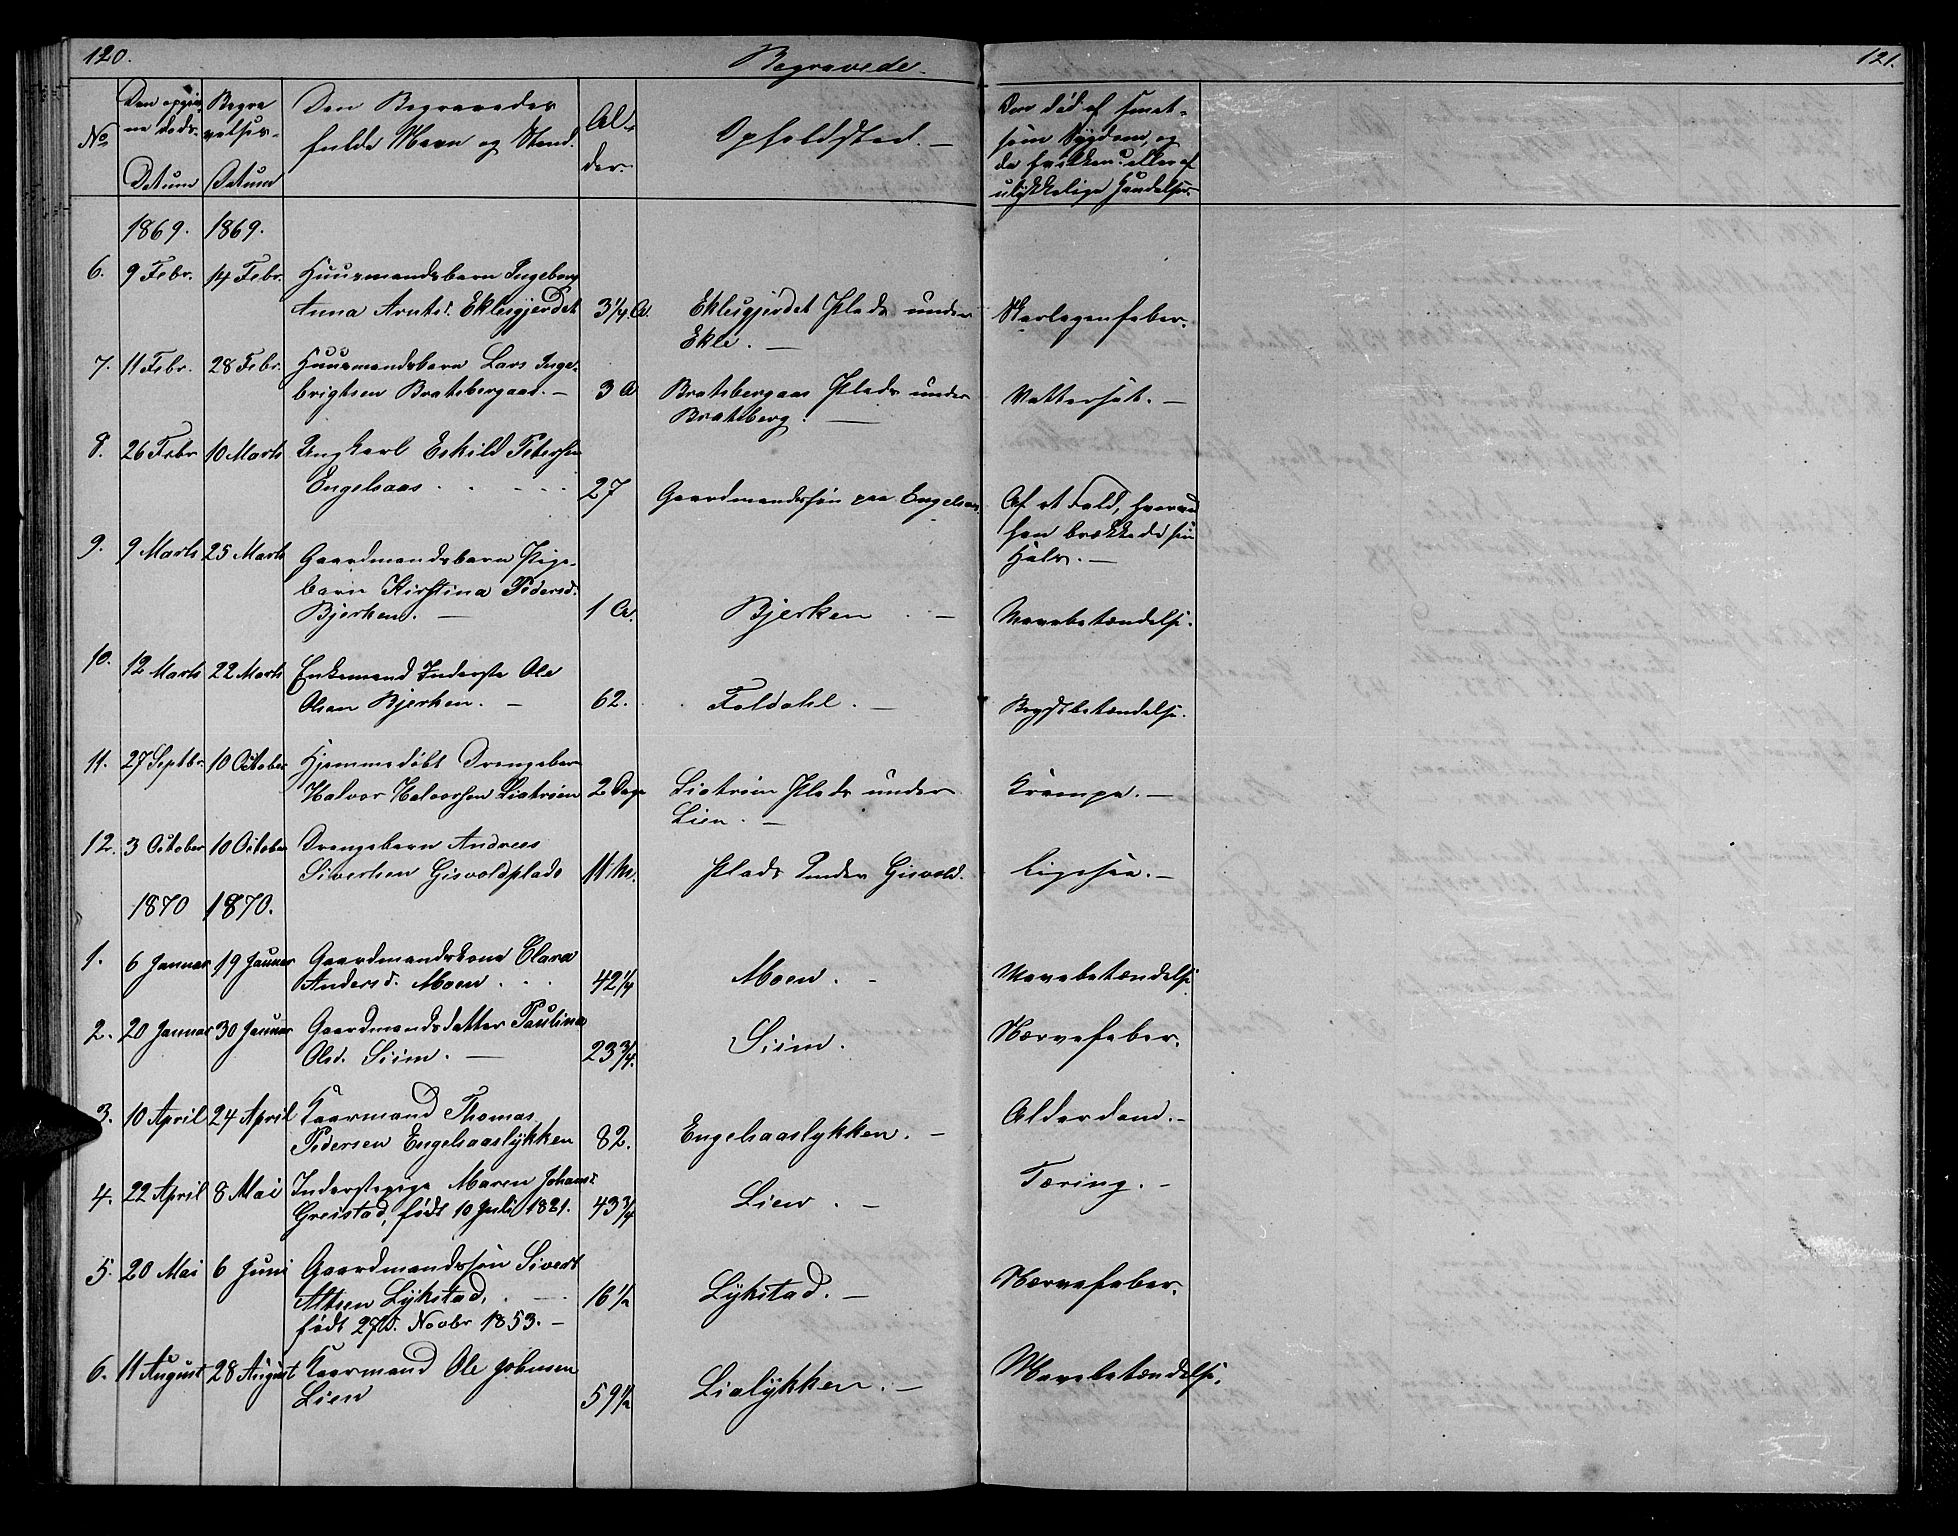 120.
Begravede.
121.
No
Den opgiv-
ne Døds-
Datum
Begra
velses-
Datum
Den Begravedes
fulde Navn og Stand.
Al-
der.
Opholdssted.
Om død af smit-
som Sygdom, og
da hvilken? eller af
ulykkelige Hændelser
1869. 1869.
6. 9 Febr. 14 Febr. Huusmandsbarn Ingeborg
Anna Arntsd. Eklesgjerdet 3¼ A. Eklesgjerdet Plads under Skarlagenfeber.
Ekle.
7. 11 Febr. 28 Febr. Huusmandsbarn Lars Inge-
brigtsen Bratsbergaas. 3 A Bratsbergaas Plads under Vattersot.
Bratsberg.
8. 26 Febr 10 Marts Ungkarl Eskild Petersen
Engelsaas 27 Gaardmandssøn paa Engelsaas. Af et Fald, hvorved
han brækkede sin
Hals.
9. 9 Marts 25 Marts Gaardmandsbarn Pige-
barn Kirstina Pedersd.
Bjerken. 1 A. Bjerken Mavebetændelse.
10. 12 Marts 22 Marts Enkemand Inderste Ole
Olsen Bjerken. 62. Foldahl. Brystbetændelse.
11. 27 Septbr. 10 October Hjemmedøbt Drengebarn
Halvor Halvorsen Liatrøen 2 Dage Liatrøen Plads under Krampe.
Lien.
12. 3 October 10 October Drengebarn Andreas
Sivertsen Gisvoldplads 11 M. Plads Under Gisvold. Ligesaa.
1870 1870.
1. 6 Januar 19 Januar Gaardmandskone Clara
Andersd. Moen 42¼ Moen. Mavebetændelse
2. 20 Januar 30 Januar Gaardmandsdatter Paulina
Olsd. Siim. 23¾. Siim. Nervefeber.
3. 10 April 24 April Kaarmand Thomas
Pedersen Engelsaaslykken 82. Engelsaaslykken. Alderdom.
4. 22 April 8 Mai Inderstepige Maren Johans:
Greistad, født 10 Juli 1821. 43¾ Lien. Tæring.
5. 20 Mai 6 Juni Gaardmandssøn Sivert
Altsen Lykstad, 16½ Lykstad. Nervefeber.
født 27d. Novbr 1853.
6. 11 August 28 August Kaarmand Ole Johnsen
Lien 59½ Lialykken. Mavebetændelse.